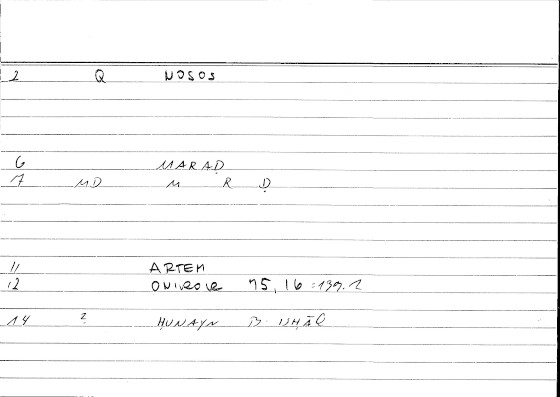 2 Q NOSOS
6 MARAḌ
7 MD M R Ḍ
11 ARTEM
12 ONIROCR 75, 16 :139.2
14 2 ḤUNAYN B ISḤĀQ